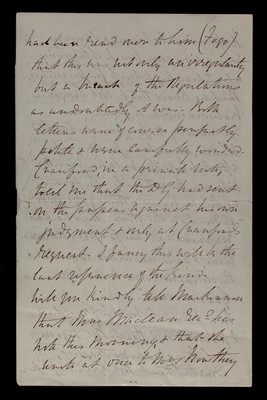 had been read over to him (Fogo)
that this was not only an irregularity
but a breach of the Regulations
as undoubtedly it was. Both
letters were of course perfectly
polite & were carefully worded.
Crawford, in a private note,
told me that the D G had sent
on the papers against his own
judgment & only at Crawford's
request. I fancy this will be the
last reference of the kind.
Will you kindly tell
that Mrs Maclean rec^d his
note this morning & that she
wrote at once to Mrs